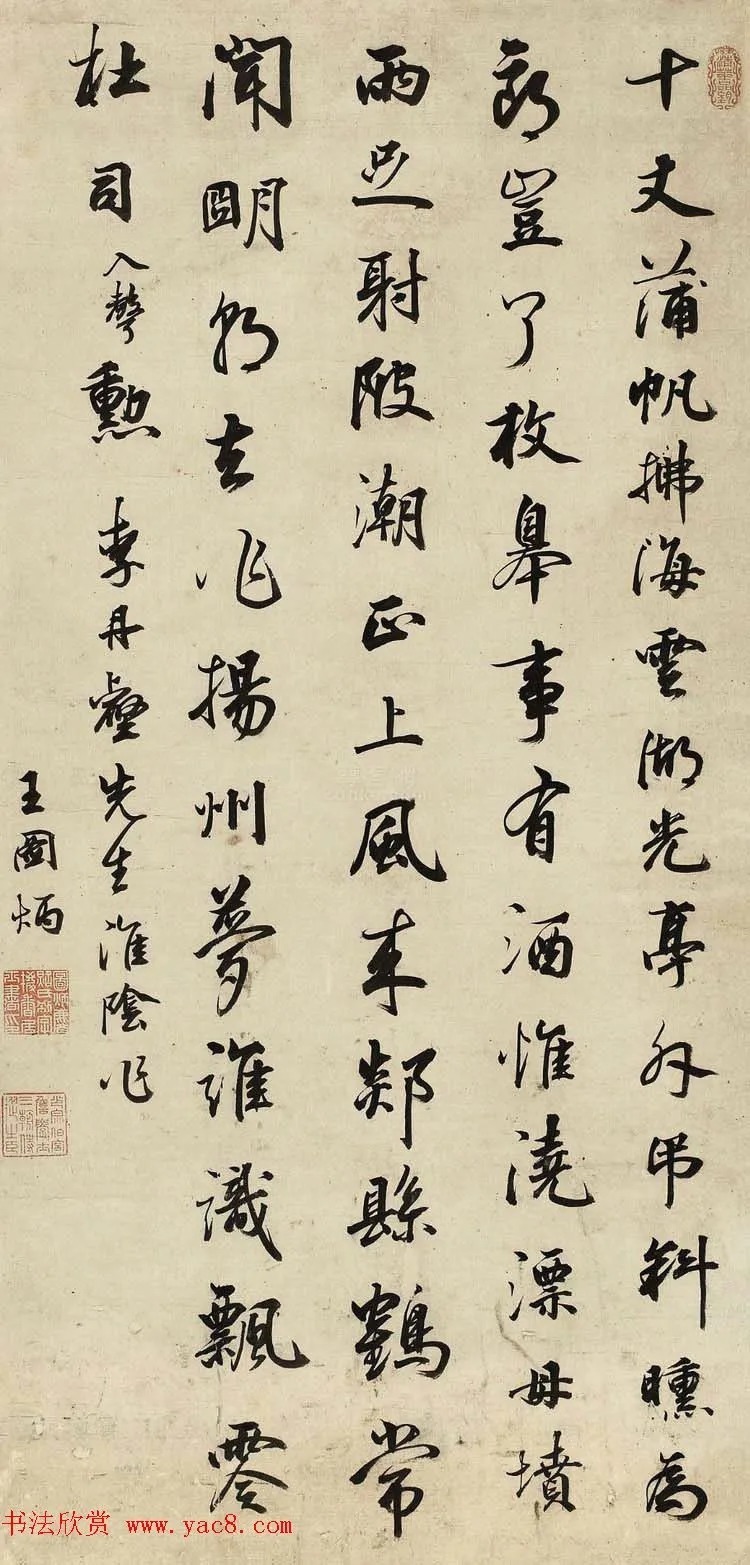 十丈蒲帆拂海雲湖光亭外弔斜曛為
郎豈了枚皋事有酒惟澆漂母墳
雨足射陂潮正上風來郯縣常
聞朙朝去作揚州夢誰識飄零
杜司入聲勳 李丹壑先生淮陰作
王圖炳
书法欣赏 www.yac8.com